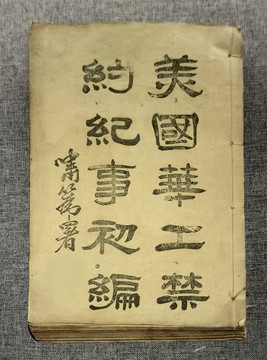 美國華工禁
約紀事初編
嘯篁署